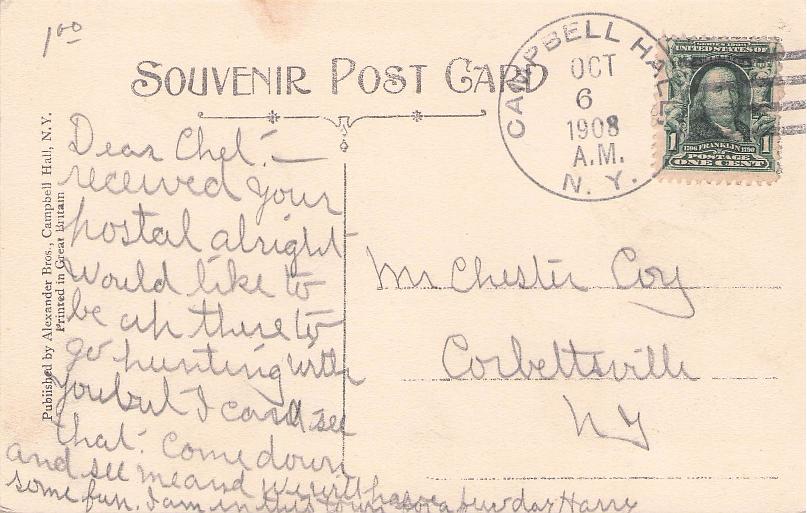 1.00
SOUVENIR POST CARD
CAMPBELL HALL,
OCT
6
1908
A.M.
N. Y.
SERIES 1902
UNITED STATES OF
1 1706 FRANKLIN 1790 1
POSTAGE
ONE CENT
Published by Alexander Bros., Campbell Hall, N.Y.
Printed in Great Britain
Dear Chet! —
received your
postal alright
would like to
be up there to
go hunting with
you but I cant see
that. Come down
and see me and we will have
some fun. I am in this town for a few days Harry
Mr Chester Coy
Corbettsville
NY